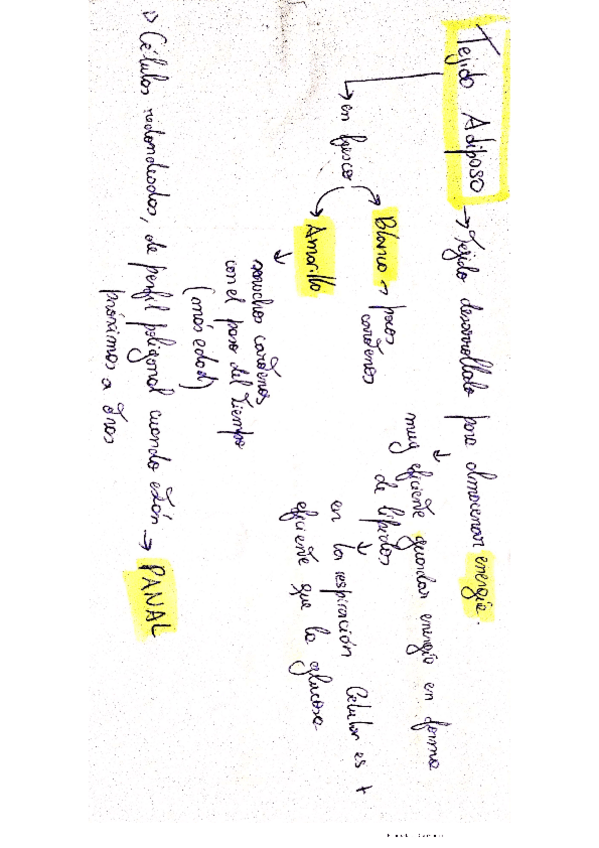 Tejido Adiposo → Tejido desarrollado para almacenar energía.
↓
muy eficiente guardar energía en forma
de lípidos
↓
en la respiración Celular es +
eficiente que la glucosa
↳ en fresco
Blanco → pocos
carotenos
Amarillo
↓
muchos carotenos
con el paso del tiempo
(más edad)
Células redondeadas, de perfil poligonal cuando están → PANAL
próximas a otras